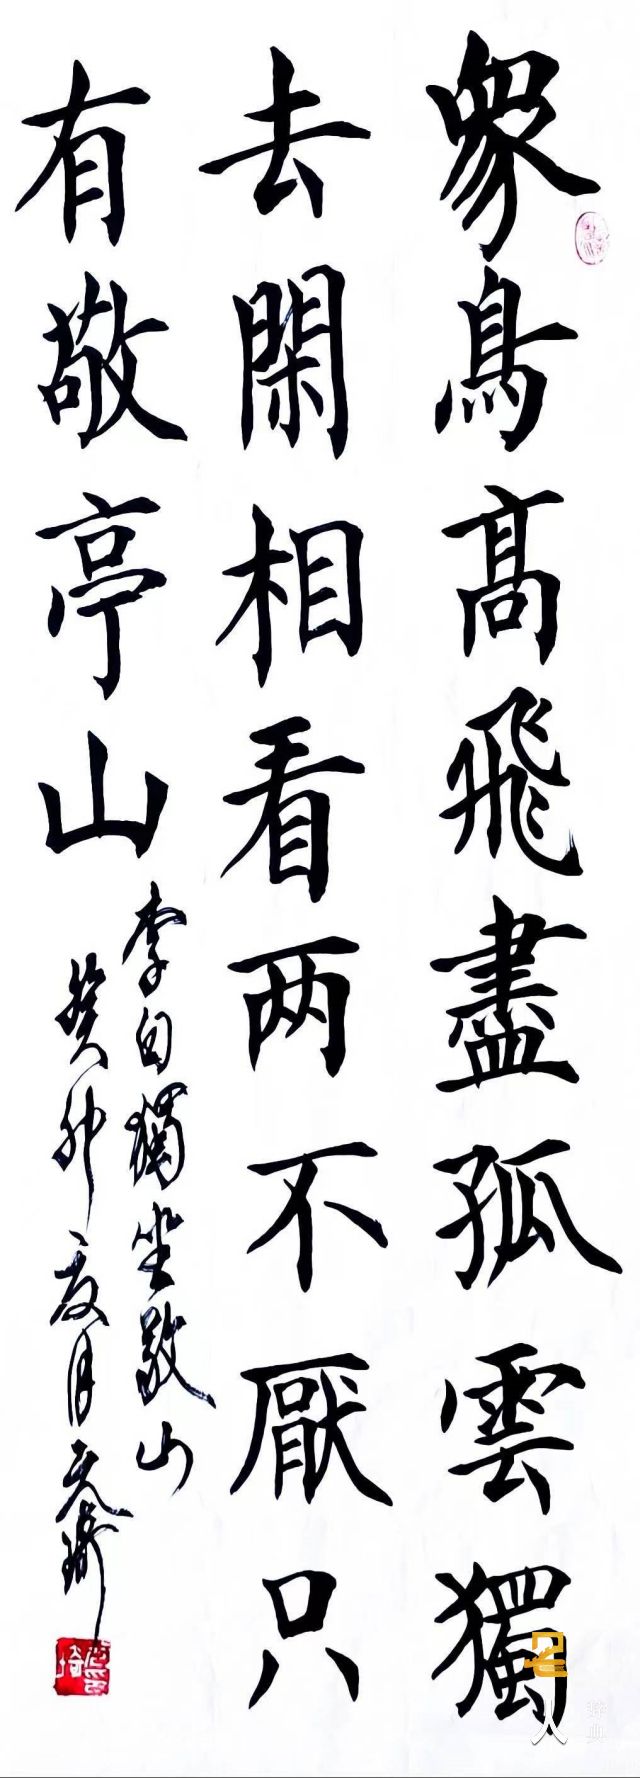 眾鳥高飛盡孤雲獨
去閑相看两不厭只
有敬亭山
李白獨坐敬山
癸卯夏月